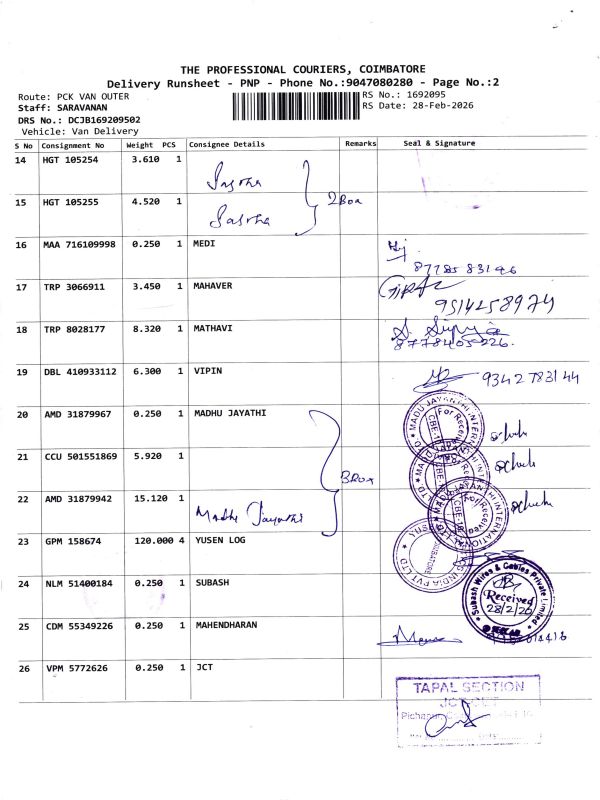 THE PROFESSIONAL COURIERS, COIMBATORE
Delivery Runsheet - PNP - Phone No.:9047080280 - Page No.:2
Route: PCK VAN OUTER
Staff: SARAVANAN
DRS No.: DCJB169209502
Vehicle: Van Delivery
RS No.: 1692095
RS Date: 28-Feb-2026
S No Consignment No Weight PCS Consignee Details Remarks Seal & Signature
14 HGT 105254 3.610 1
15 HGT 105255 4.520 1
2 Box
16 MAA 716109998 0.250 1 MEDI
87785 83146
17 TRP 3066911 3.450 1 MAHAVER
9514258974
18 TRP 8028177 8.320 1 MATHAVI
8778405226.
19 DBL 410933112 6.300 1 VIPIN
9342783144
20 AMD 31879967 0.250 1 MADHU JAYATHI
21 CCU 501551869 5.920 1
3 Box
22 AMD 31879942 15.120 1 Madhu Jayathi
23 GPM 158674 120.000 4 YUSEN LOG
24 NLM 51400184 0.250 1 SUBASH
Subash Wires & Cables Private Limited
Received
28/2/26
25 CDM 55349226 0.250 1 MAHENDHARAN
26 VPM 5772626 0.250 1 JCT
TAPAL SECTION